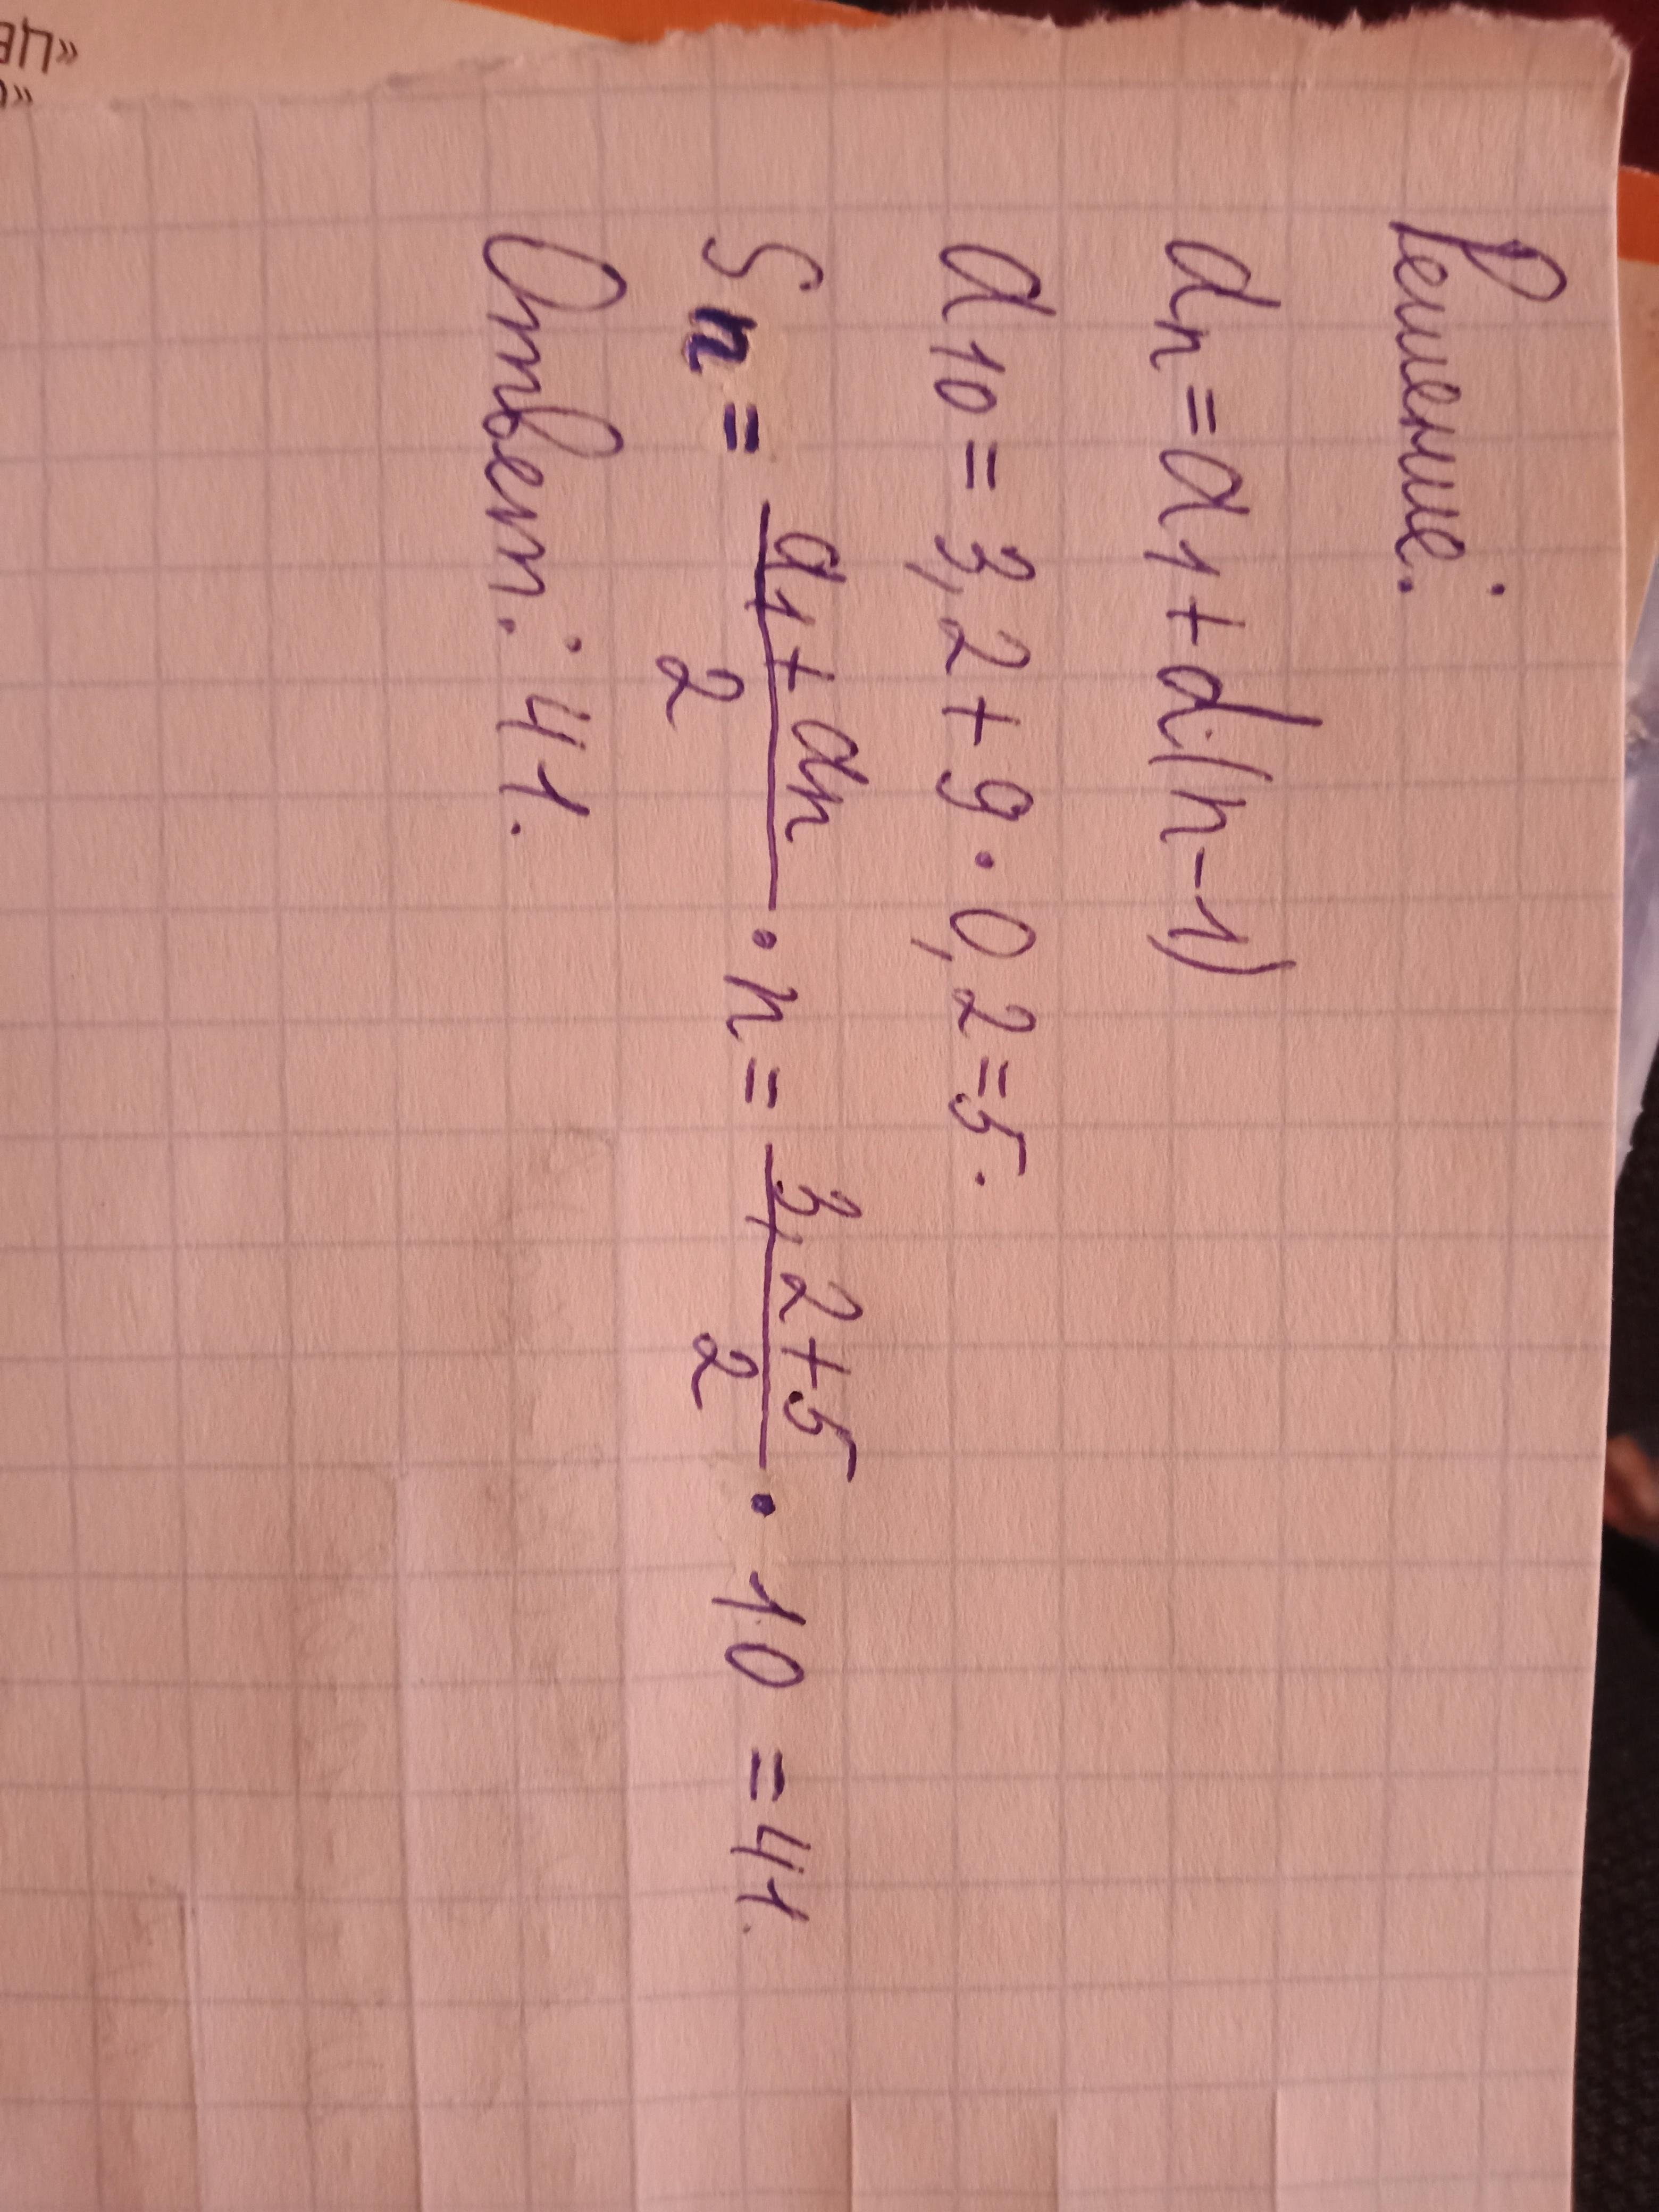 Решение:
an = a1 + d(n-1)
a10 = 3,2 + 9 · 0,2 = 5.
Sn = (a1 + an)/2 · n = (3,2 + 5)/2 · 10 = 41.
Ответ: 41.